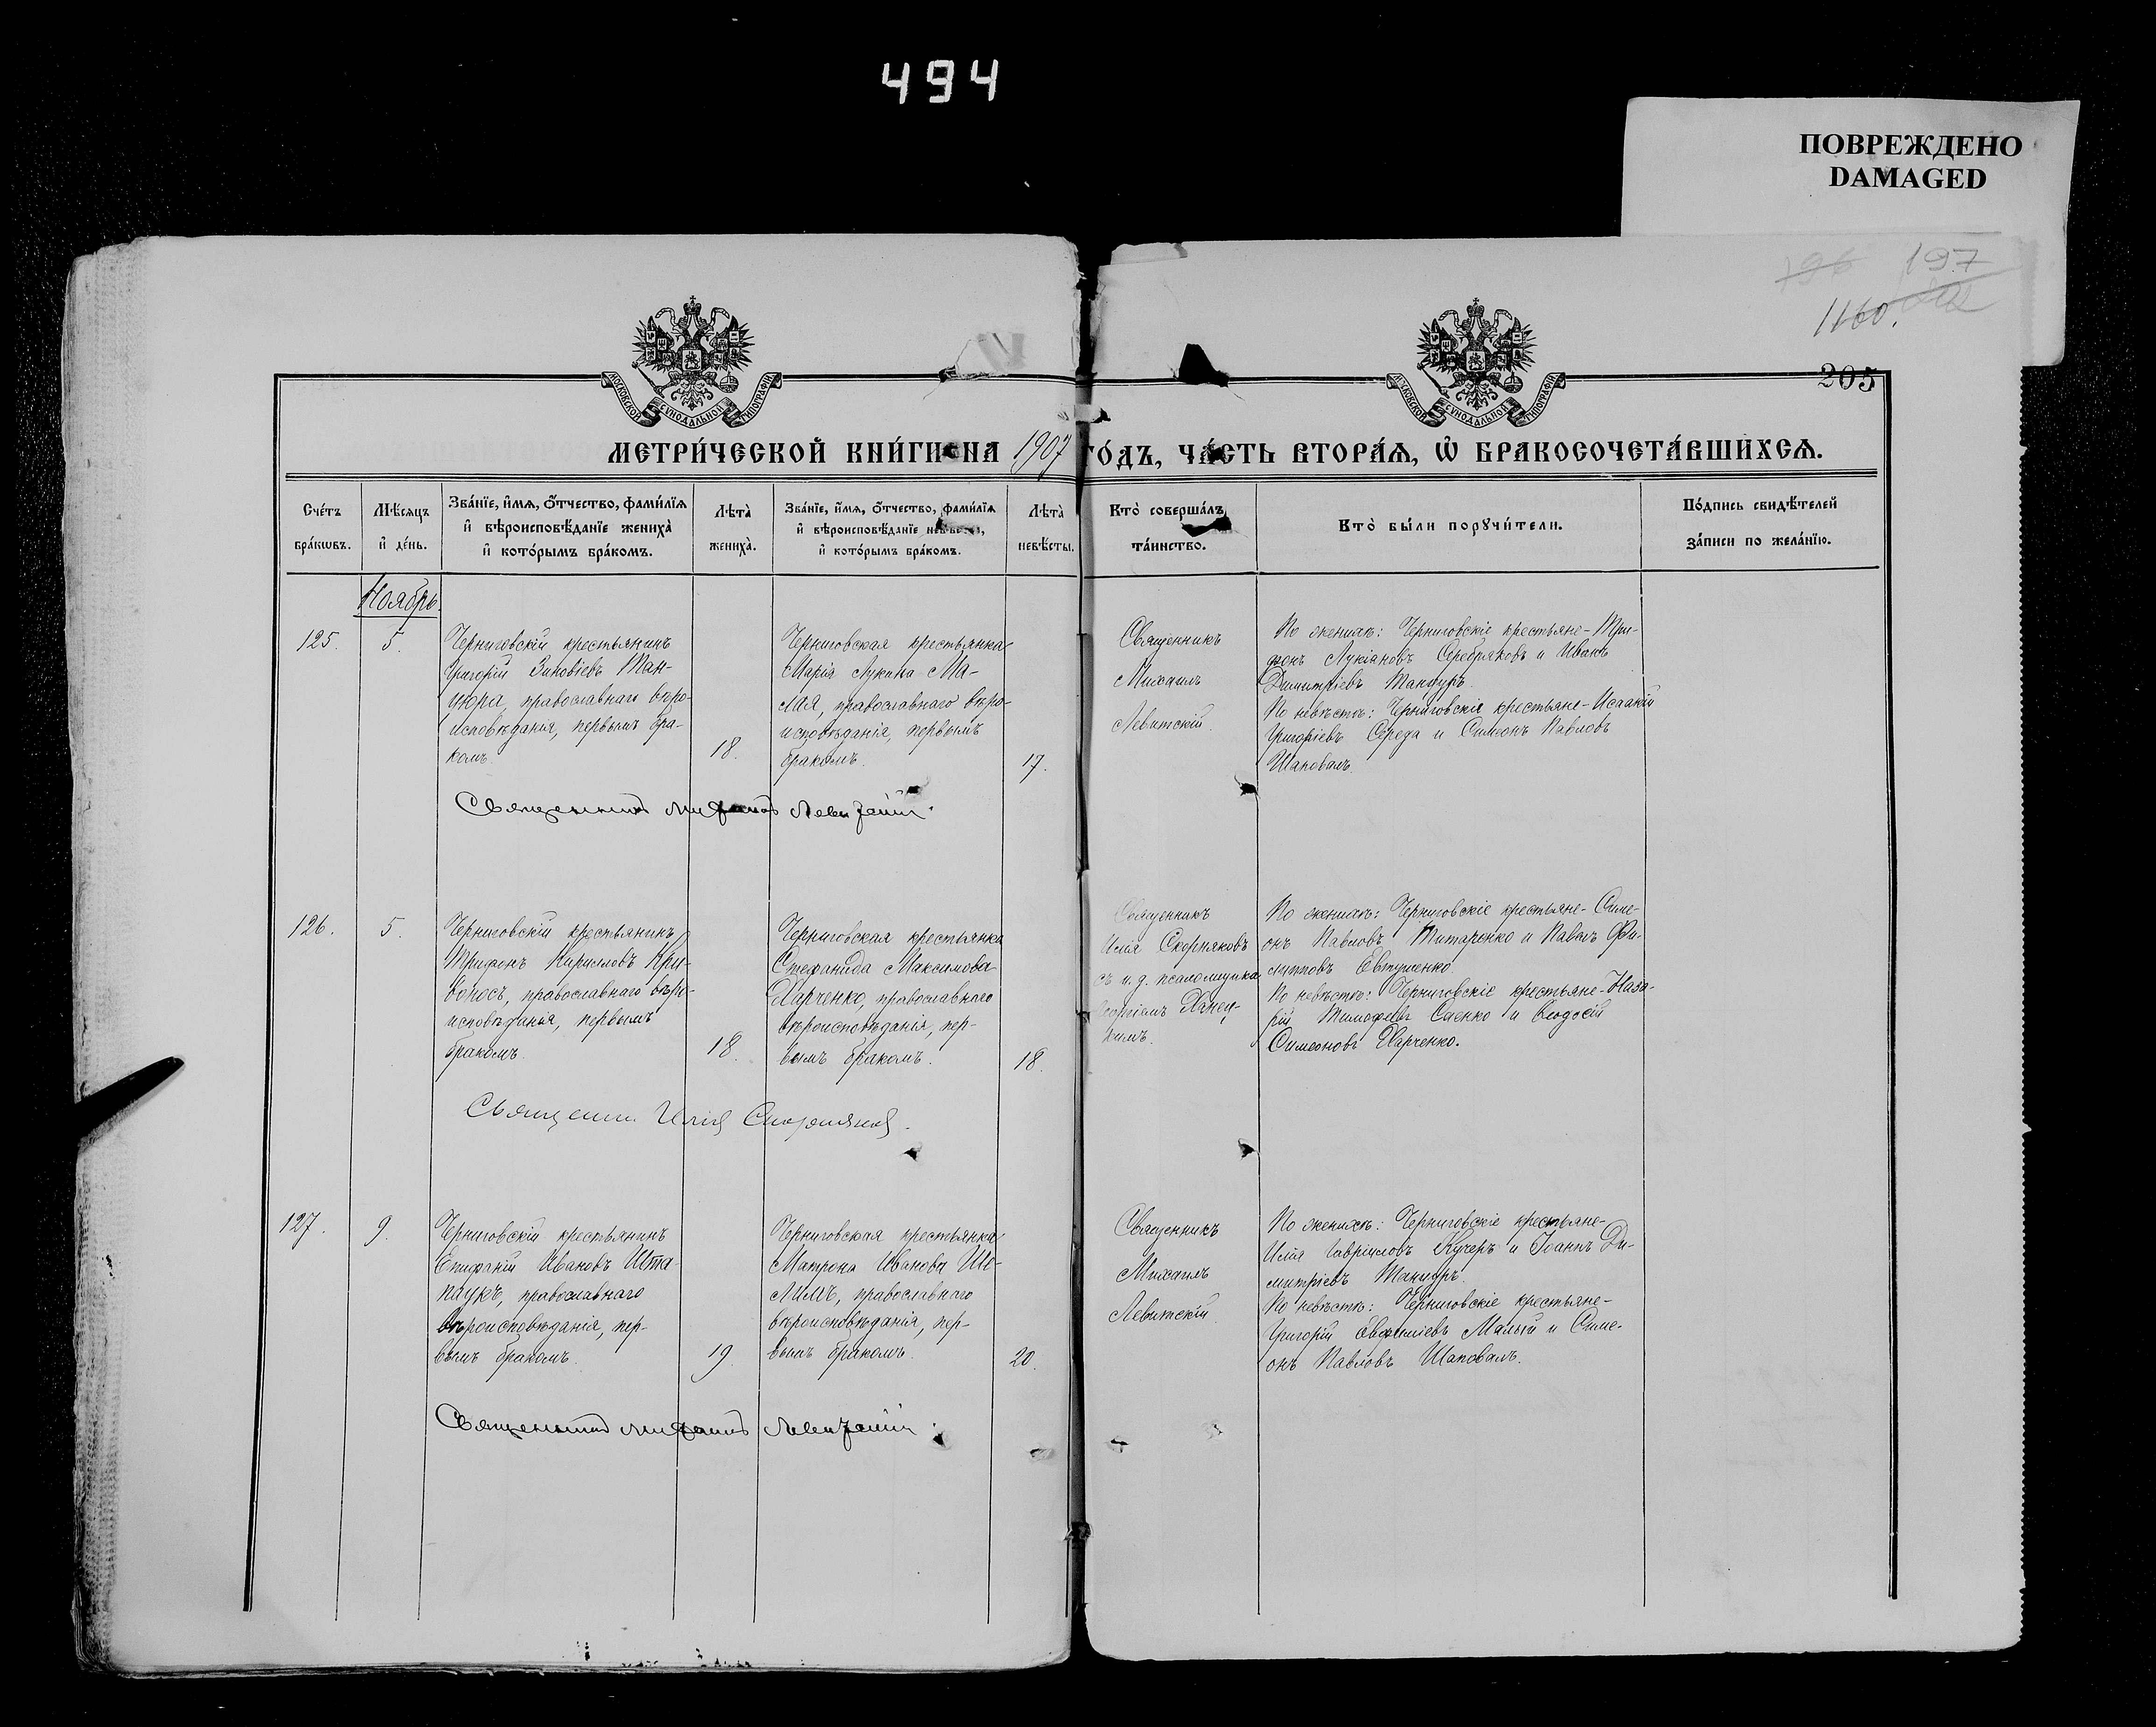 494
ПОВРЕЖДЕНО
DAMAGED
196 197
1160.
205
МОСКОВСКОЙ СѴНОДАЛЬНОЙ ТИПОГРАФІИ
МОСКОВСКОЙ СѴНОДАЛЬНОЙ ТИПОГРАФІИ
МЕТРИ́ЧЕСКОЙ КНИ́ГИ НА 1907 ГО́ДЪ, ЧА́СТЬ ВТОРА́Ѧ, Ѡ҆ БРАКОСОЧЕТА́ВШИХСѦ.
Сче́тъ
бра́кѡвъ.
Мѣ́сяцъ
и҆ де́нь.
Зва́нїе, и҆́мѧ, ѻ҆́тчество, фами́лїѧ
и҆ вѣроисповѣ́данїе жениха̀
и҆ кото́рымъ бра́комъ.
Лѣта̀
жениха̀.
Зва́нїе, и҆́мѧ, ѻ҆́тчество, фами́лїѧ
и҆ вѣроисповѣ́данїе невѣсты,
и҆ кото́рымъ бра́комъ.
Лѣта̀
невѣ́сты.
Кто̀ соверша́лъ
та́инство.
Кто̀ бы́ли порꙋчи́тели.
По́дпись свидѣ́телей
за́писи по жела́нїю.
Ноябрь.
125.
5.
Черниговскій крестьянинъ
Григорій Зиновіевъ Тан-
цюра, православнаго вѣро-
исповѣданія, первымъ бра-
комъ.
18.
Черниговская крестьянка
Марія Лукина Ма-
лая, православнаго вѣро-
исповѣданія, первымъ
бракомъ.
17.
Священникъ
Михаилъ
Левитскій.
По женихѣ: Черниговскіе крестьяне-Три-
фонъ Лукіановъ Серебряковъ и Иванъ
Димитріевъ Танцуръ.
По невѣстѣ: Черниговскіе крестьяне-Исаакій
Григоріевъ Середа и Симеонъ Павловъ
Шаповалъ.
Священникъ Михаилъ Левитскій.
126.
5.
Черниговскій крестьянинъ
Трифонъ Кирилловъ Кри-
воносъ, православнаго вѣро-
исповѣданія, первымъ
бракомъ.
18.
Черниговская крестьянка
Стефанида Максимова
Харченко, православнаго
вѣроисповѣданія, пер-
вымъ бракомъ.
18.
Священникъ
Илія Скорняковъ
съ и. д. псаломщика
Георгіемъ Ханец-
кимъ.
По женихѣ: Черниговскіе крестьяне-Симе-
онъ Павловъ Титаренко и Павелъ Фи-
липповъ Евтушенко.
По невѣстѣ: Черниговскіе крестьяне-Наза-
рій Тимофеевъ Саенко и Ѳеодосій
Симеоновъ Харченко.
Священ. Илія Скорняковъ.
127.
9.
Черниговскій крестьянинъ
Епифаній Ивановъ Шта-
паукъ, православнаго
вѣроисповѣданія, пер-
вымъ бракомъ.
19.
Черниговская крестьянка
Матрона Иванова Ше-
лимъ, православнаго
вѣроисповѣданія, пер-
вымъ бракомъ.
20.
Священникъ
Михаилъ
Левитскій.
По женихѣ: Черниговскіе крестьяне-
Илія Гавріиловъ Кучеръ и Іоаннъ Ди-
митріевъ Танцуръ.
По невѣстѣ: Черниговскіе крестьяне-
Григорій Евфиміевъ Малый и Симе-
онъ Павловъ Шаповалъ.
Священникъ Михаилъ Левитскій.